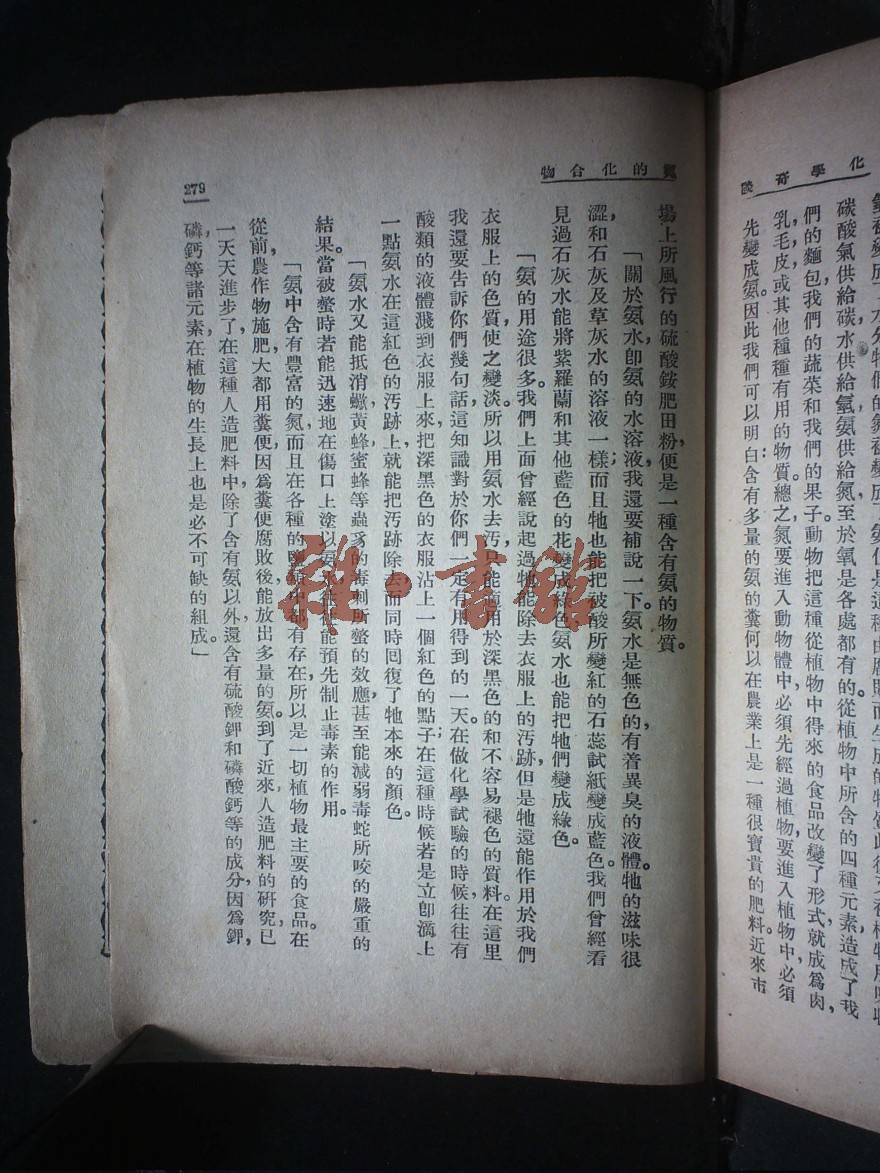 化學奇談
碳酸氣供給碳水供給氫氨供給氮至於氧是各處都有的。從植物中所含的四種元素,造成了我
們的麵包,我們的蔬菜和我們的果子。動物把這種從植物中得來的食品改變了形式,就成爲肉,
乳,毛,皮,或其他種種有用的物質。總之,氮要進入動物體中,必須先經過植物;要進入植物中,必須
先變成氨。因此我們可以明白:含有多量的氨的糞何以在農業上是一種很寶貴的肥料。近來市
的化合物
場上所風行的硫酸銨肥田粉,便是一種含有氨的物質。
「關於氨水,卽氨的水溶液,我還要補說一下。氨水是無色的,有着異臭的液體。牠的滋味很
澀,和石灰及草灰水的溶液一樣;而且牠也能把被酸所變紅的石蕊試紙變成藍色。我們曾經看
見過石灰水能將紫羅蘭和其他藍色的花變成綠色,氨水也能把牠們變成綠色。
「氨的用途很多。我們上面曾經說起過牠能除去衣服上的汚跡,但是牠還能作用於我們
衣服上的色質,使之變淡。所以用氨水去汚,只能適用於深黑色的和不容易褪色的質料。在這里
我還要告訴你們幾句話,這知識對於你們一定有用得到的一天。在做化學試驗的時候,往往有
酸類的液體濺到衣服上來,把深黑色的衣服沾上一個紅色的點子;在這種時候,若是立卽滴上
一點氨水在這紅色的汚跡上,就能把汚跡除去而同時回復了牠本來的顏色。
「氨水又能抵消蠍,黃蜂,蜜蜂等蟲豸的毒刺所螫的效應,甚至能減弱毒蛇所咬的嚴重的
結果。當被螫時若能迅速地在傷口上塗以氨水,往往能預先制止毒素的作用。
「氨中含有豐富的氮,而且在各種的鹽類中都有存在,所以是一切植物最主要的食品。在
從前,農作物施肥大都用糞便,因爲糞便腐敗後能放出多量的氨。到了近來,人造肥料的硏究,已
一天天進步了,在這種人造肥料中,除了含有氨以外,還含有硫酸鉀和磷酸鈣等的成分,因爲鉀,
磷,鈣等諸元素在植物的生長上也是必不可缺的組成。」
279
雜·書館